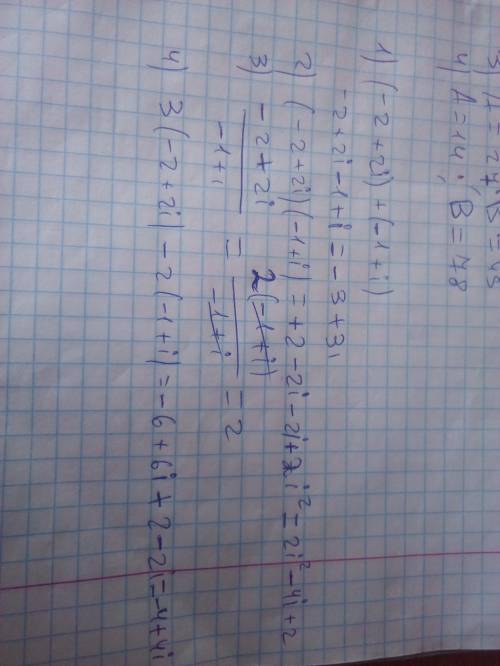 3) A = 27; B = 43
4) A = 14; B = 78
1) (-2+2i)+(-1+i)
-2+2i-1+i=-3+3i
2) (-2+2i)(-1+i)=+2-2i-2i+2i²=2i²-4i+2
3) -2+2i / -1+i = 2(-1+i) / -1+i = 2
4) 3(-2+2i)-2(-1+i)=-6+6i+2-2i=-4+4i